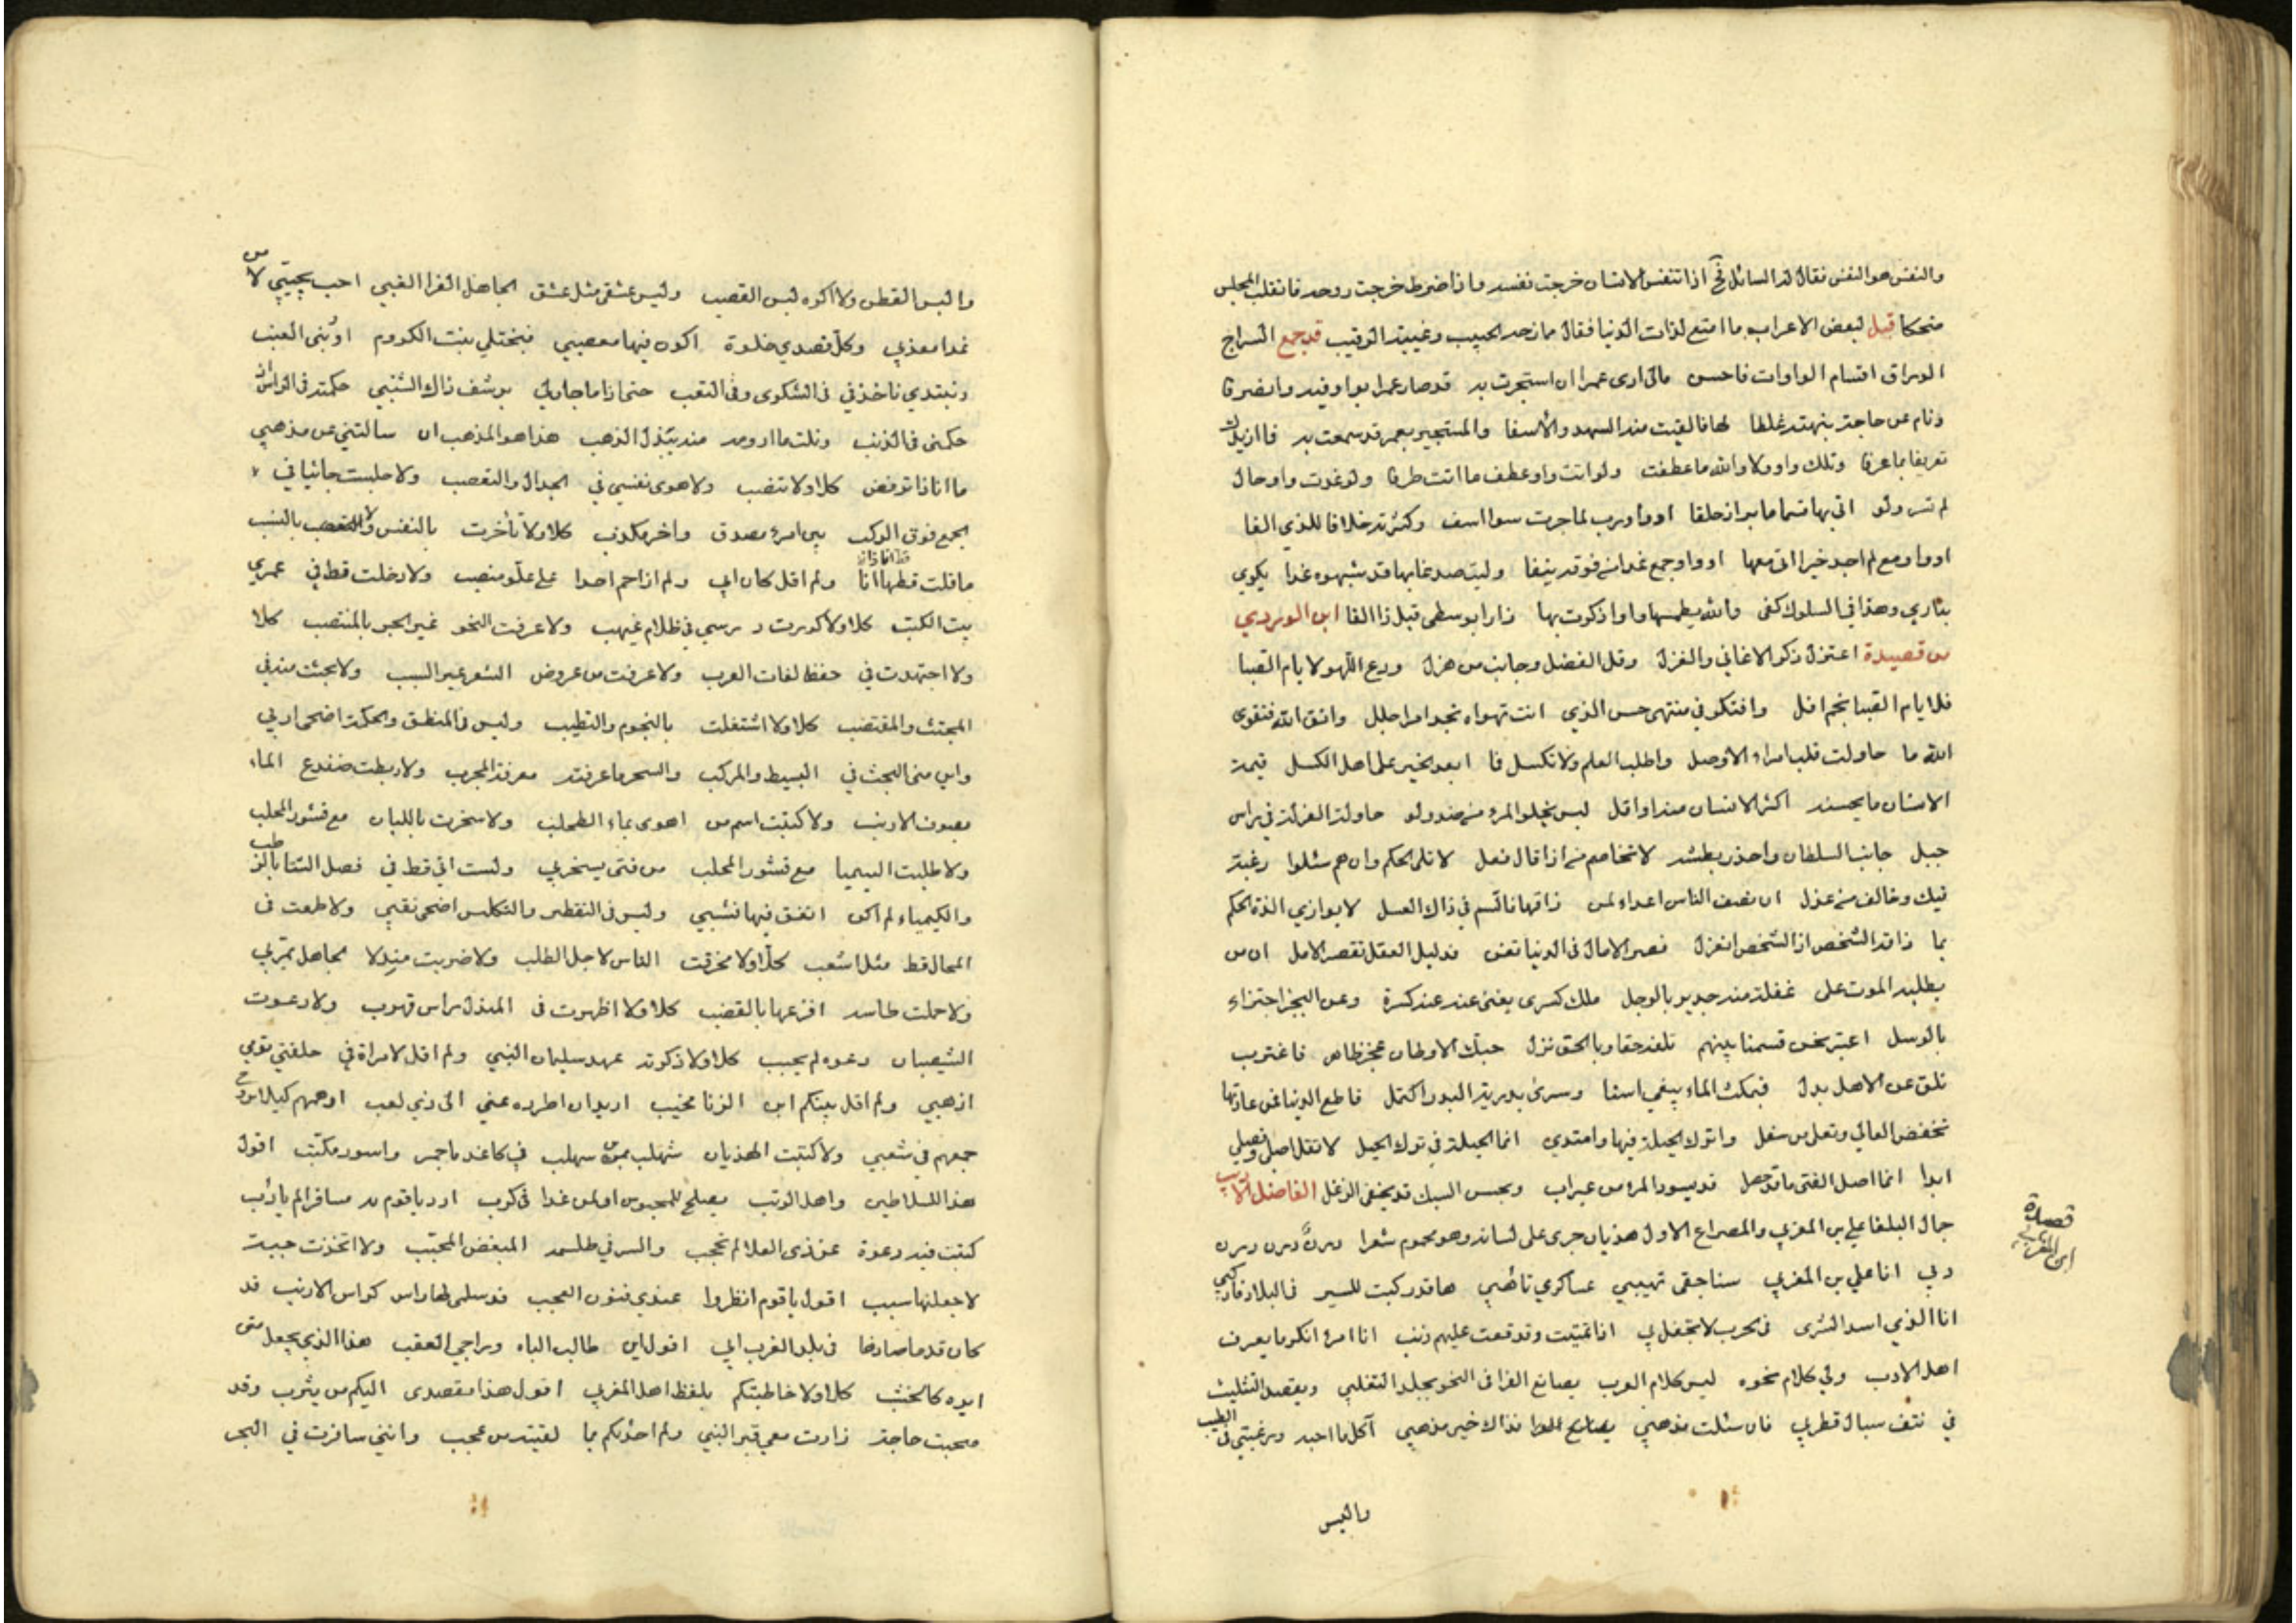 والنفس هو النفس فقال له السائل نح اذا تنفس الانسان خرجت نفسه واذا ضرط خرجت روحه فانقلب المجلس
ضحكا قيل لبعض الاعراب ما امتع لذات الدنيا فقال ممازحة الحبيب وغيبة الرقيب قد جمع السراج
الوراق اقسام الواوات فاحسن مالى ارى عمرا ان استجرت به قد صار عمرا بواو فيه وانصرفا
ونام عن حاجة نبهته غلطا لها فالفيت منه السهد والاسفا والمستجير بعمرو قد سمعت به فما ازيدك
تعريفا بما عرفا وتلك واو ولا والله ما عطفت ولو اتت واو عطف ما اتت طرفا ولو غدت واو حال
لم تسر ولو اتى بها قسما ما بر اذ حلفا او واو رب لما جرت سوا اسف وكثرته خلافا للذي الفا
او واو مع لم اجد خيرا اتى معها او واو جمع غدا من فوقه نيفا وليت صدغا بها قد شبهوه غدا يكوي
بناري وهذا في السلوك كفى والله يطمسها واوا ذكرت بها ذا را بوسطى قبل ذا الفا ابن الوردي
من قصيدة اعتزل ذكر الاغاني والغزل وقل الفضل وجانب من هزل ودع اللهو لايام الصبا
فلايام الصبا نجم افل وافتكر في منتهى حسن الذي انت تهواه تجد امرا جلل واتق الله فتقوى
الله ما جاورت قلب امرء الا وصل واطلب العلم ولا تكسل فما ابعد الخير على اهل الكسل قيمة
الانسان ما يحسنه اكثر الانسان منه او اقل ليس يخلو المرء من ضد ولو حاول العزلة في راس
جبل جانب السلطان واحذر بطشه لا تخاصم من اذا قال فعل لا تلى الحكم وان هم سئلوا رغبة
فيك وخالف من عذل ان نصف الناس اعداء لمن ذاقها فالسم في ذاك العسل لا يوازي لذة الحكم
بما ذاقه الشخص اذ الشخص انعزل قصر الامال في الدنيا تفز فدليل العقل تقصير الامل ان من
يطلبه الموت على غفلة منه جدير بالوجل ملك كسرى يغنى عنه كسرة وعن البحر اجتزاء
بالوشل اعتبر نحن قسمنا بينهم تلقه حقا وبالحق نزل حبك الاوطان عجز ظاهر فاغترب
تلق عن الاهل بدل فبمكث الماء يبقى اسنا وسرى بدر به البدر اكتمل قاطع الدنيا فمن عاداتها
تخفض العالي وتعلى من سفل واترك الحيلة فيها وامتدي انما الحيلة في ترك الحيل لا تقل اصلي وفصلي
ابدا انما اصل الفتى ما قد حصل قد يسود المرء من غير اب وبحسن السبك قد ينفى الزغل الفاضل الاديب
جمال البلغا علي بن المغربي والمصراع الاول هذيان جرى على لسانه وهو محموم شعرا ددن ددن ددن
دبي انا علي بن المغربي سناجقى تهيبي عساكري تاهبي ها قد ركبت للسير في البلاد فاركبي
انا الذي اسد الشرى في الحرب لا تحفل بي اذا تمنيت وقد قعت عليهم ذنب انا امرء انكر ما يعرف
اهل الادب ولي كلام نحوه ليس كلام العرب يصانع الفرا فى النحو بجلد الثعلب ويقصد التثليث
في نتف سبال قطرب فان سئلت مذهبي فذاك خير مذهبي آكل ما احبه ورغبتي في الطيب
والبس
قصيدة
ابن المغربي
والبس القطن ولا اكره لبس القصب وليس عشق مثل عشق الجاهل الغر الغبي احب يجتبي لا من
غدا معذبي وكل قصدي خلوة اكون فيها مع صبي فنختلي ببنت الكروم او بنى العنب
ونبتدي ناخذ في فى الشكوى وفى التعب حتى اذا ما جاد لي برشف ذاك الشنب حكمته في الراس
حكمنى في الذنب ونلت ما ارومه منه ببذل الذهب هذا هو المذهب ان سالتني عن مذهبي
ما انا ذا ترفض كلا ولا تنصب ولا هوى نفسي في الجدال والتعصب ولا جلست جاثيا في
الجمع فوق الركب بين امرء مصدق واخر مكذب كلا ولا تاخرت بالنفس ولا بالنسب
ما قلت قط ها انا ولم اقل كان ابي ولم ازاحم احدا على علو منصب ولا دخلت قط في عمري
بيت الكتب كلا ولا كررت درسي في ظلام غيهب ولا عرفت النحو غير الجر بالمنتصب كلا
ولا اجتهدت في حفظ لغات العرب ولا عرفت من عروض الشعر غير السبب ولا بحثت منه في
المجتث والمقتضب كلا ولا اشتغلت بالنجوم والتطبب وليس في المنطق والحكمة اضحى اربي
واين مني البحث في البسيط والمركب والسحر ما عرفته معرفة المجرب ولا ربطت ضفدع الماء
بصوف الارنب ولا كتبت اسم من اهوى بماء الطحلب ولا سخرت باللبان مع قشور المحلب
ولا طلبت السيميا مع قشور المحلب من فتى يسخر بي ولست اتي قط في فصل الشتا بالرطب
والكيمياء لم اكن انفق فيها نشبي وليس في التقطير والتكليس اضحى نقبي ولا طمعت في
المحال قط مثل اشعب كلا ولا مخرقت الناس لاجل الطلب ولا ضربت مندلا لجاهل يمر بي
ولا حملت طاسة اقرعها بالقضب كلا ولا اظهرت في المندل راس قهرب ولا دعوت
الشيصبان دعوه لم يجب كلا ولا ذكرته عهد سليمان النبي ولم اقل لامراة في حلقتي قومي
اذهبي ولم اقل بينكم ابن الزنا مخنب اريد ان اطرده عني الى ذي لعب اوهمهم كيلا
جمعهم في شعبي ولا كتبت الهذيان شهلب من سهلب في كاغد باحمر واسود مكتب اقول
هذا للسلاطين واهل الرتب يصلح للمحبوس او لمن غدا في كرب ارد يا قوم به مسافرا لم ياب
كتبت فيه دعوة عن ذى العلا لم تحجب والسر في طلسمه المبغض المحبب ولا اتخذت حية
لاجعلها سبب اقول يا قوم انظروا عندي فنون العجب قد سلم لها راس كراس الارنب قد
كان قدما صادها في بلد الغرب ابي اقول اين طالب الباه وراجي العقب هذا الذي يجعل متى
ايره كالخشب كلا ولا خاطبتكم بلفظ اهل المغرب اقول هذا مقصدى اليكم من يثرب وقد
صحبت حاجة زارت معي قبر النبي ولم احدثكم بما لقيته من عجب وانني سافرت في البحر